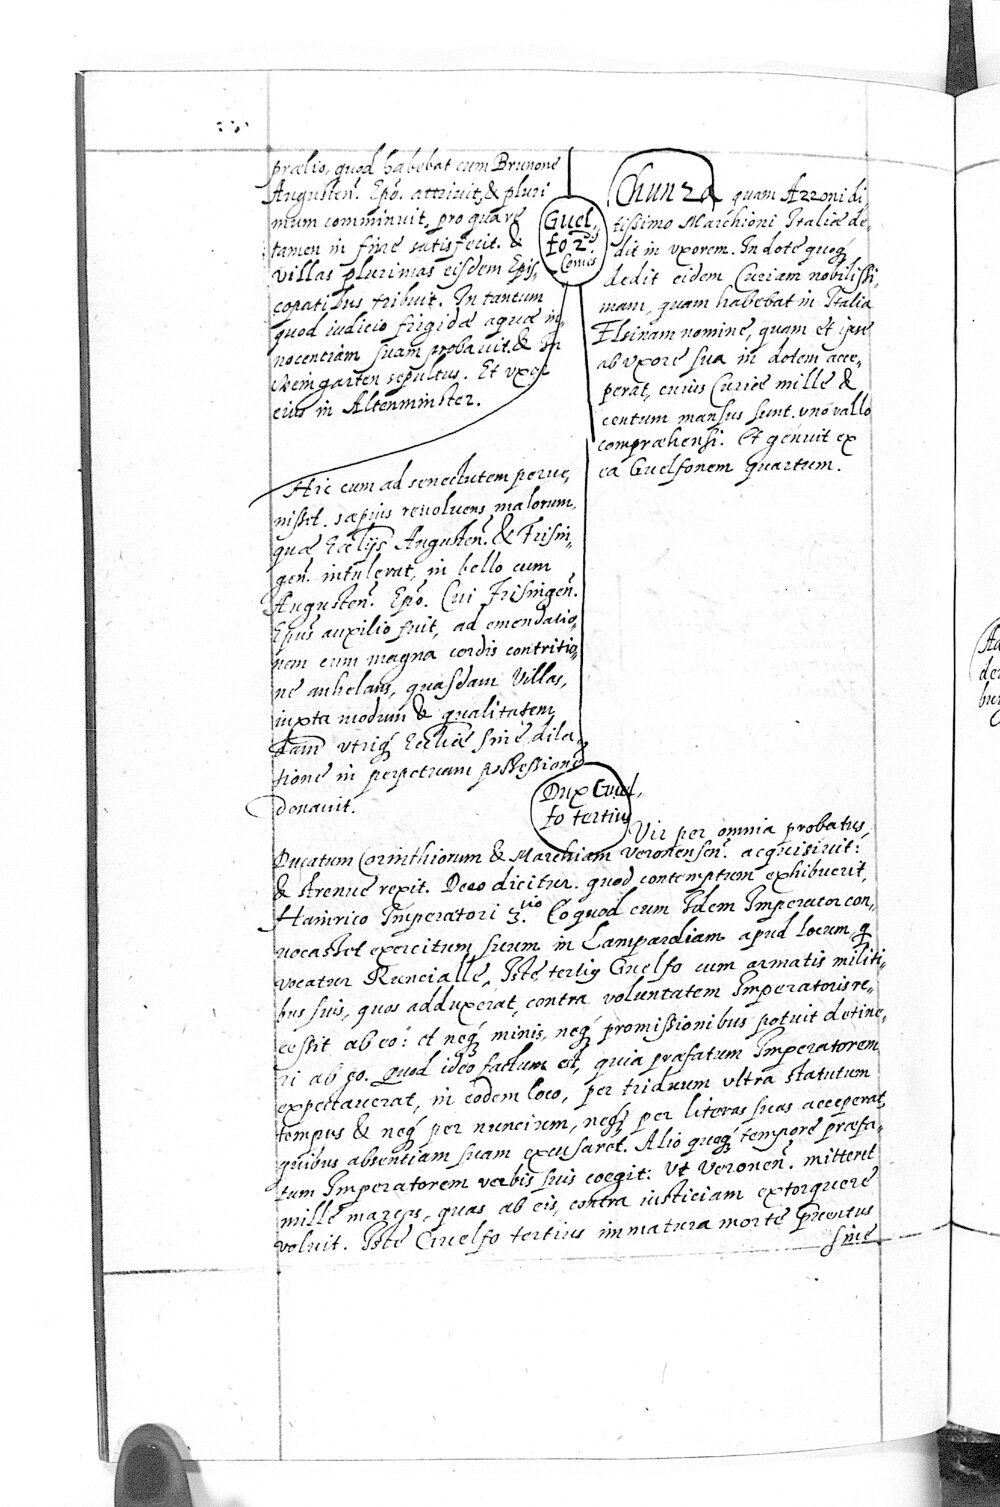 prælio, quod habebat cum Brunone
Augusten. Epō. attriuit, & pluri
mum comminuit, pro quare
tamen in fine satisfecit. &
villas plurimas eisdem Epis,
copatibus tribuit. In tantum
quod iudicio frigidæ aquæ in,
nocentiam suam probauit. & In
Weingarten sepultus. Et vxor
eius in Altenminster.
Guel,
fo 2.us
Comes
Chunza quam Azzoni di,
tissimo Marchioni Italiæ de,
dit in vxorem. In dote quoq́
dedit eidem Curiam nobilissi,
mam, quam habebat in Italia
Elsinam nomine, quam et ipse
ab vxore sua in dotem acce,
perat, cuius Curiæ mille &
centum mansus sunt. vno vallo
compræhensi. Et genuit ex
ea Guelfonem quartum.
Hic cum ad senectutem perue,
nisset. sæpius reuoluens malorum,
quæ Eccliis Augusten. & Frisin,
gen. intulerat, in bello cum
Augusten. Epō. Cui Frisingen.
Epūs auxilio fuit, ad emendatio,
nem cum magna cordis contritio,
ne anhelans, quasdam Villas,
iuxta modum & qualitatem
dam̄ vtriq́ Eccliæ sine dila,
tione in perpetuam possessionē
donauit.
Dux Guel,
fo tertius
Vir per omnia probatus,
Ducatum Corinthiorum & Marchiam Veronensen. acquisiuit:
& strenue rexit. Deeo dicitur. quod contemptum exhibuerit,
Hainrico Imperatori 3.tio Eo quod cum Idem Imperator con,
uocasset exercitum suum in Lampardiam apud locum q̄
vocatur Runcialle, Iste tertius Guelfo cum armatis militi,
bus suis, quos adduxerat, contra voluntatem Imperatoris re,
cessit ab eo: et neq́ minis, neq́ promissionibus potuit detine,
ri ab eo. Quod ideo factum est, quia præfatum Imperatorem
expectauerat, in eodem loco, per triduum vltra statutum
tempus & neq́ per nuncium, neq́ per literas suas acceperat,
quibus absentiam suam excusaret. Alio quoq́ tempore præfa,
tum Imperatorem verbis suis coegit: Vt Veronen. mitteret
mille marcas, quas ab eis, contra iusticiam extorquere
voluit. Iste Guelfo tertius immatura morte præuentus
sine